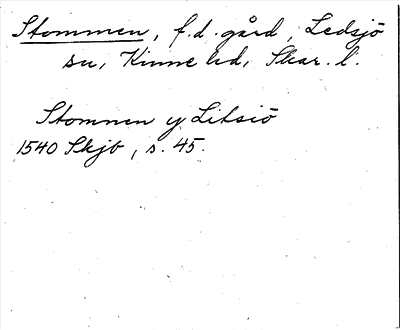 Stommen, f.d. gård, Ledsjö
sn, Kinne hd, Skar. l.
Stomnen y Litsiö
1540 Skjb, s. 45.